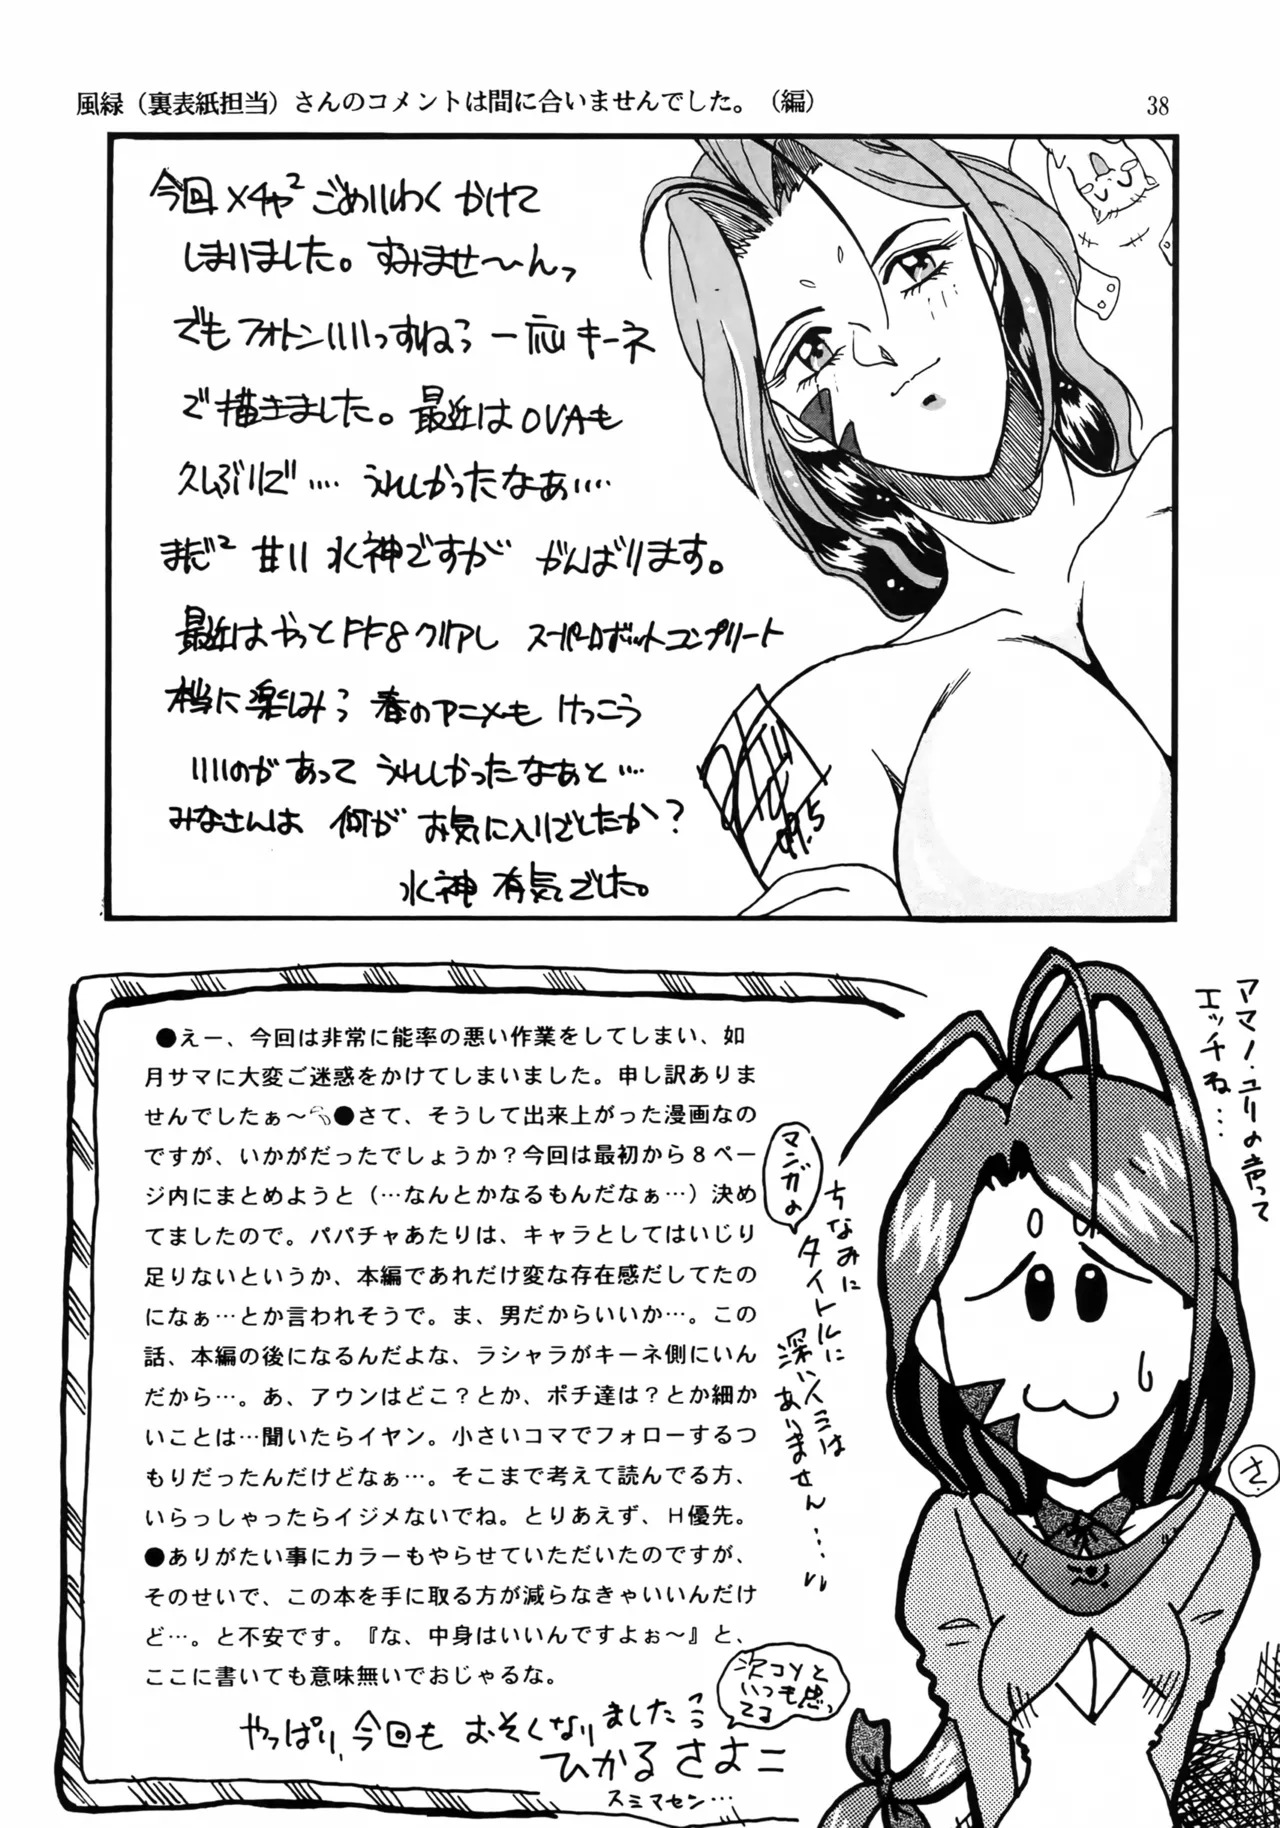 風緑（裏表紙担当）さんのコメントは間に合いませんでした。（編）
38
今回メチャ²ごめいわくかけて
しまいました。すみませ〜んっ
でもフォトンいいっすねう一応キーネ
で描きました。最近はOVAも
久しぶりで‥‥うれしかったなぁ‥‥
まだ²#11水神ですががんばります。
最近はやっとFF8クリアしスーパーロボットコンプリート
本当に楽しみう春のアニメもけっこう
いいのがあってうれしかったなぁと…
みなさんは何がお気に入りでしたか？
水神有気でした。
99.5
●えー、今回は非常に能率の悪い作業をしてしまい、如
月サマに大変ご迷惑をかけてしまいました。申し訳ありま
せんでしたぁ〜●さて、そうして出来上がった漫画なの
ですが、いかがだったでしょうか？今回は最初から８ペー
ジ内にまとめようと（…なんとかなるもんだなぁ…）決め
てましたので。パパチャあたりは、キャラとしてはいじり
足りないというか、本編であれだけ変な存在感だしてたの
になぁ…とか言われそうで。ま、男だからいいか…。この
話、本編の後になるんだよな、ラシャラがキーネ側にいん
だから…。あ、アウンはどこ？とか、ポチ達は？とか細か
いことは…聞いたらイヤン。小さいコマでフォローするつ
もりだったんだけどなぁ…。そこまで考えて読んでる方、
いらっしゃったらイジメないでね。とりあえず、Ｈ優先。
●ありがたい事にカラーもやらせていただいたのですが、
そのせいで、この本を手に取る方が減らなきゃいいんだけ
ど…。と不安です。『な、中身はいいんですよぉ〜』と、
ここに書いても意味無いでおじゃるな。
やっぱり、今回もおそくなりました…
次コソと
いつも思っ
てる
ひかるさよこ
スミマセン…
アマノ・ユリの声って
エッチね…
ちなみに
マンガの
タイトルに
深いイミは
ありません…
さ